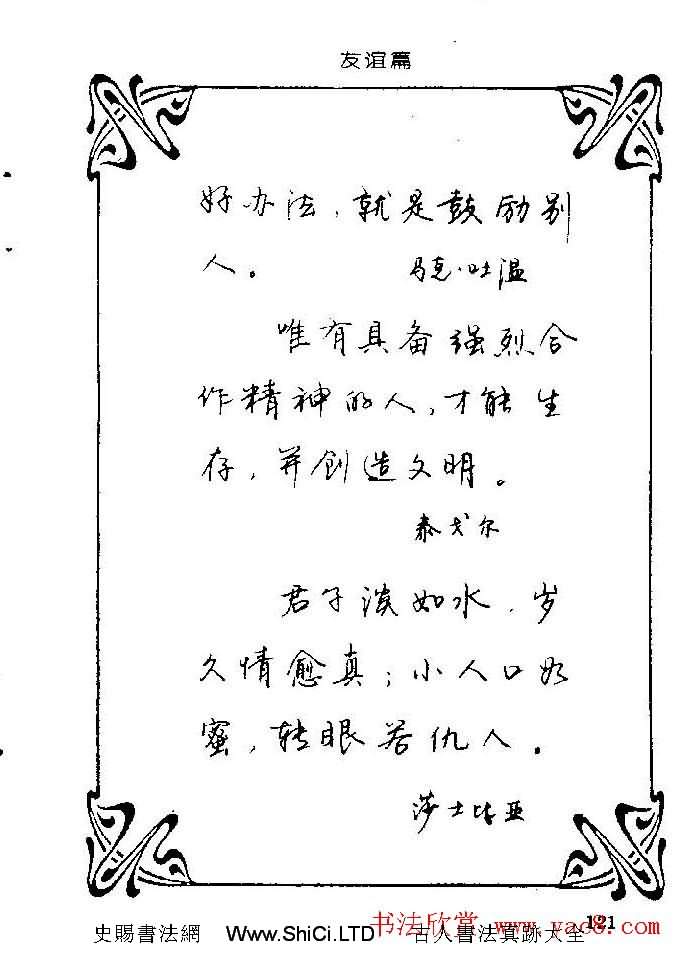 友谊篇
好办法，就是鼓励别
人。 马克·吐温
唯有具备强烈合
作精神的人，才能生
存，并创造文明。
泰戈尔
君子淡如水，岁
久情愈真；小人口如
蜜，转眼若仇人。
莎士比亚
121
书法欣赏 www.yac8.com
史賜書法網 Www.ShiCi.LTD 古人書法真跡大全